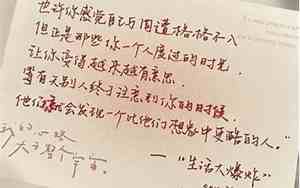 也许你感觉自己与周遭格格不入
但正是那些你一个人度过的时光,
让你变得越来越有意思,
等有天别人终于注意到你的时候,
他们就会发现一个比他们想象中更酷的人。"
—— "生活大爆炸"
我的心眼
大于整个宇宙